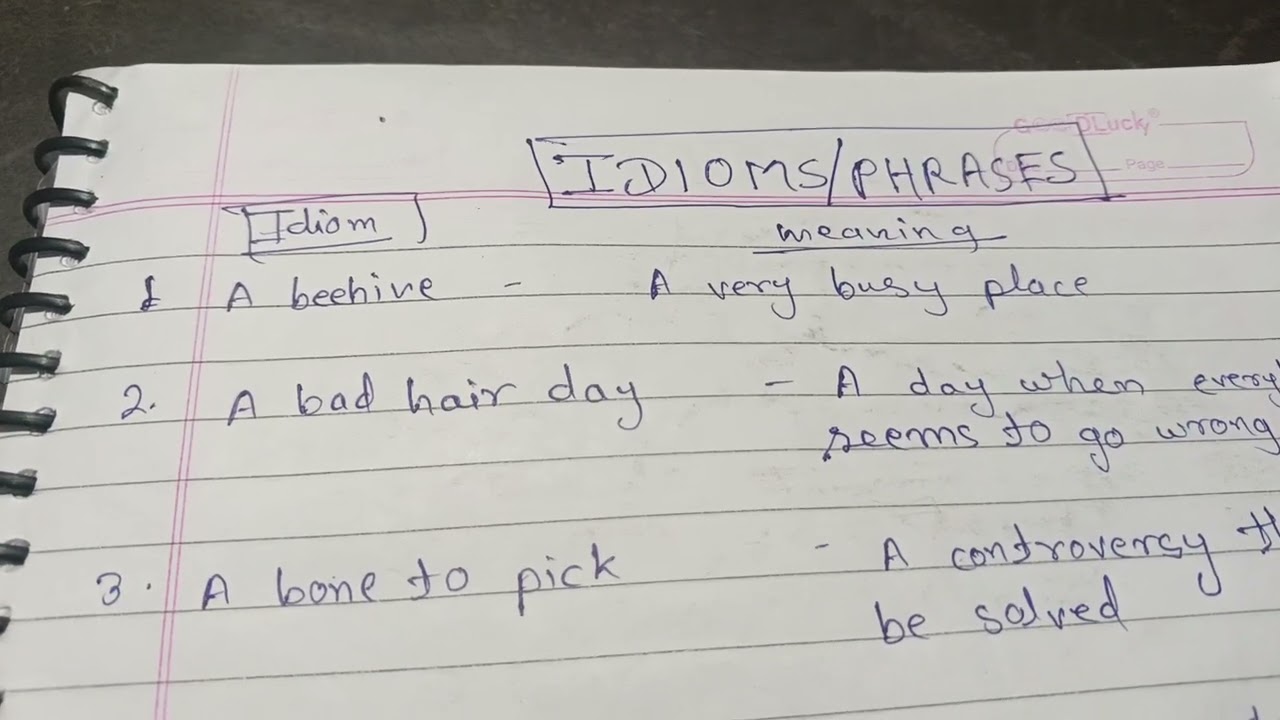 GoodLuck®
Page
IDIOMS/PHRASES
Idiom meaning
1 A beehive - A very busy place
2. A bad hair day - A day when every
seems to go wrong
3. A bone to pick - A controversy
be solved